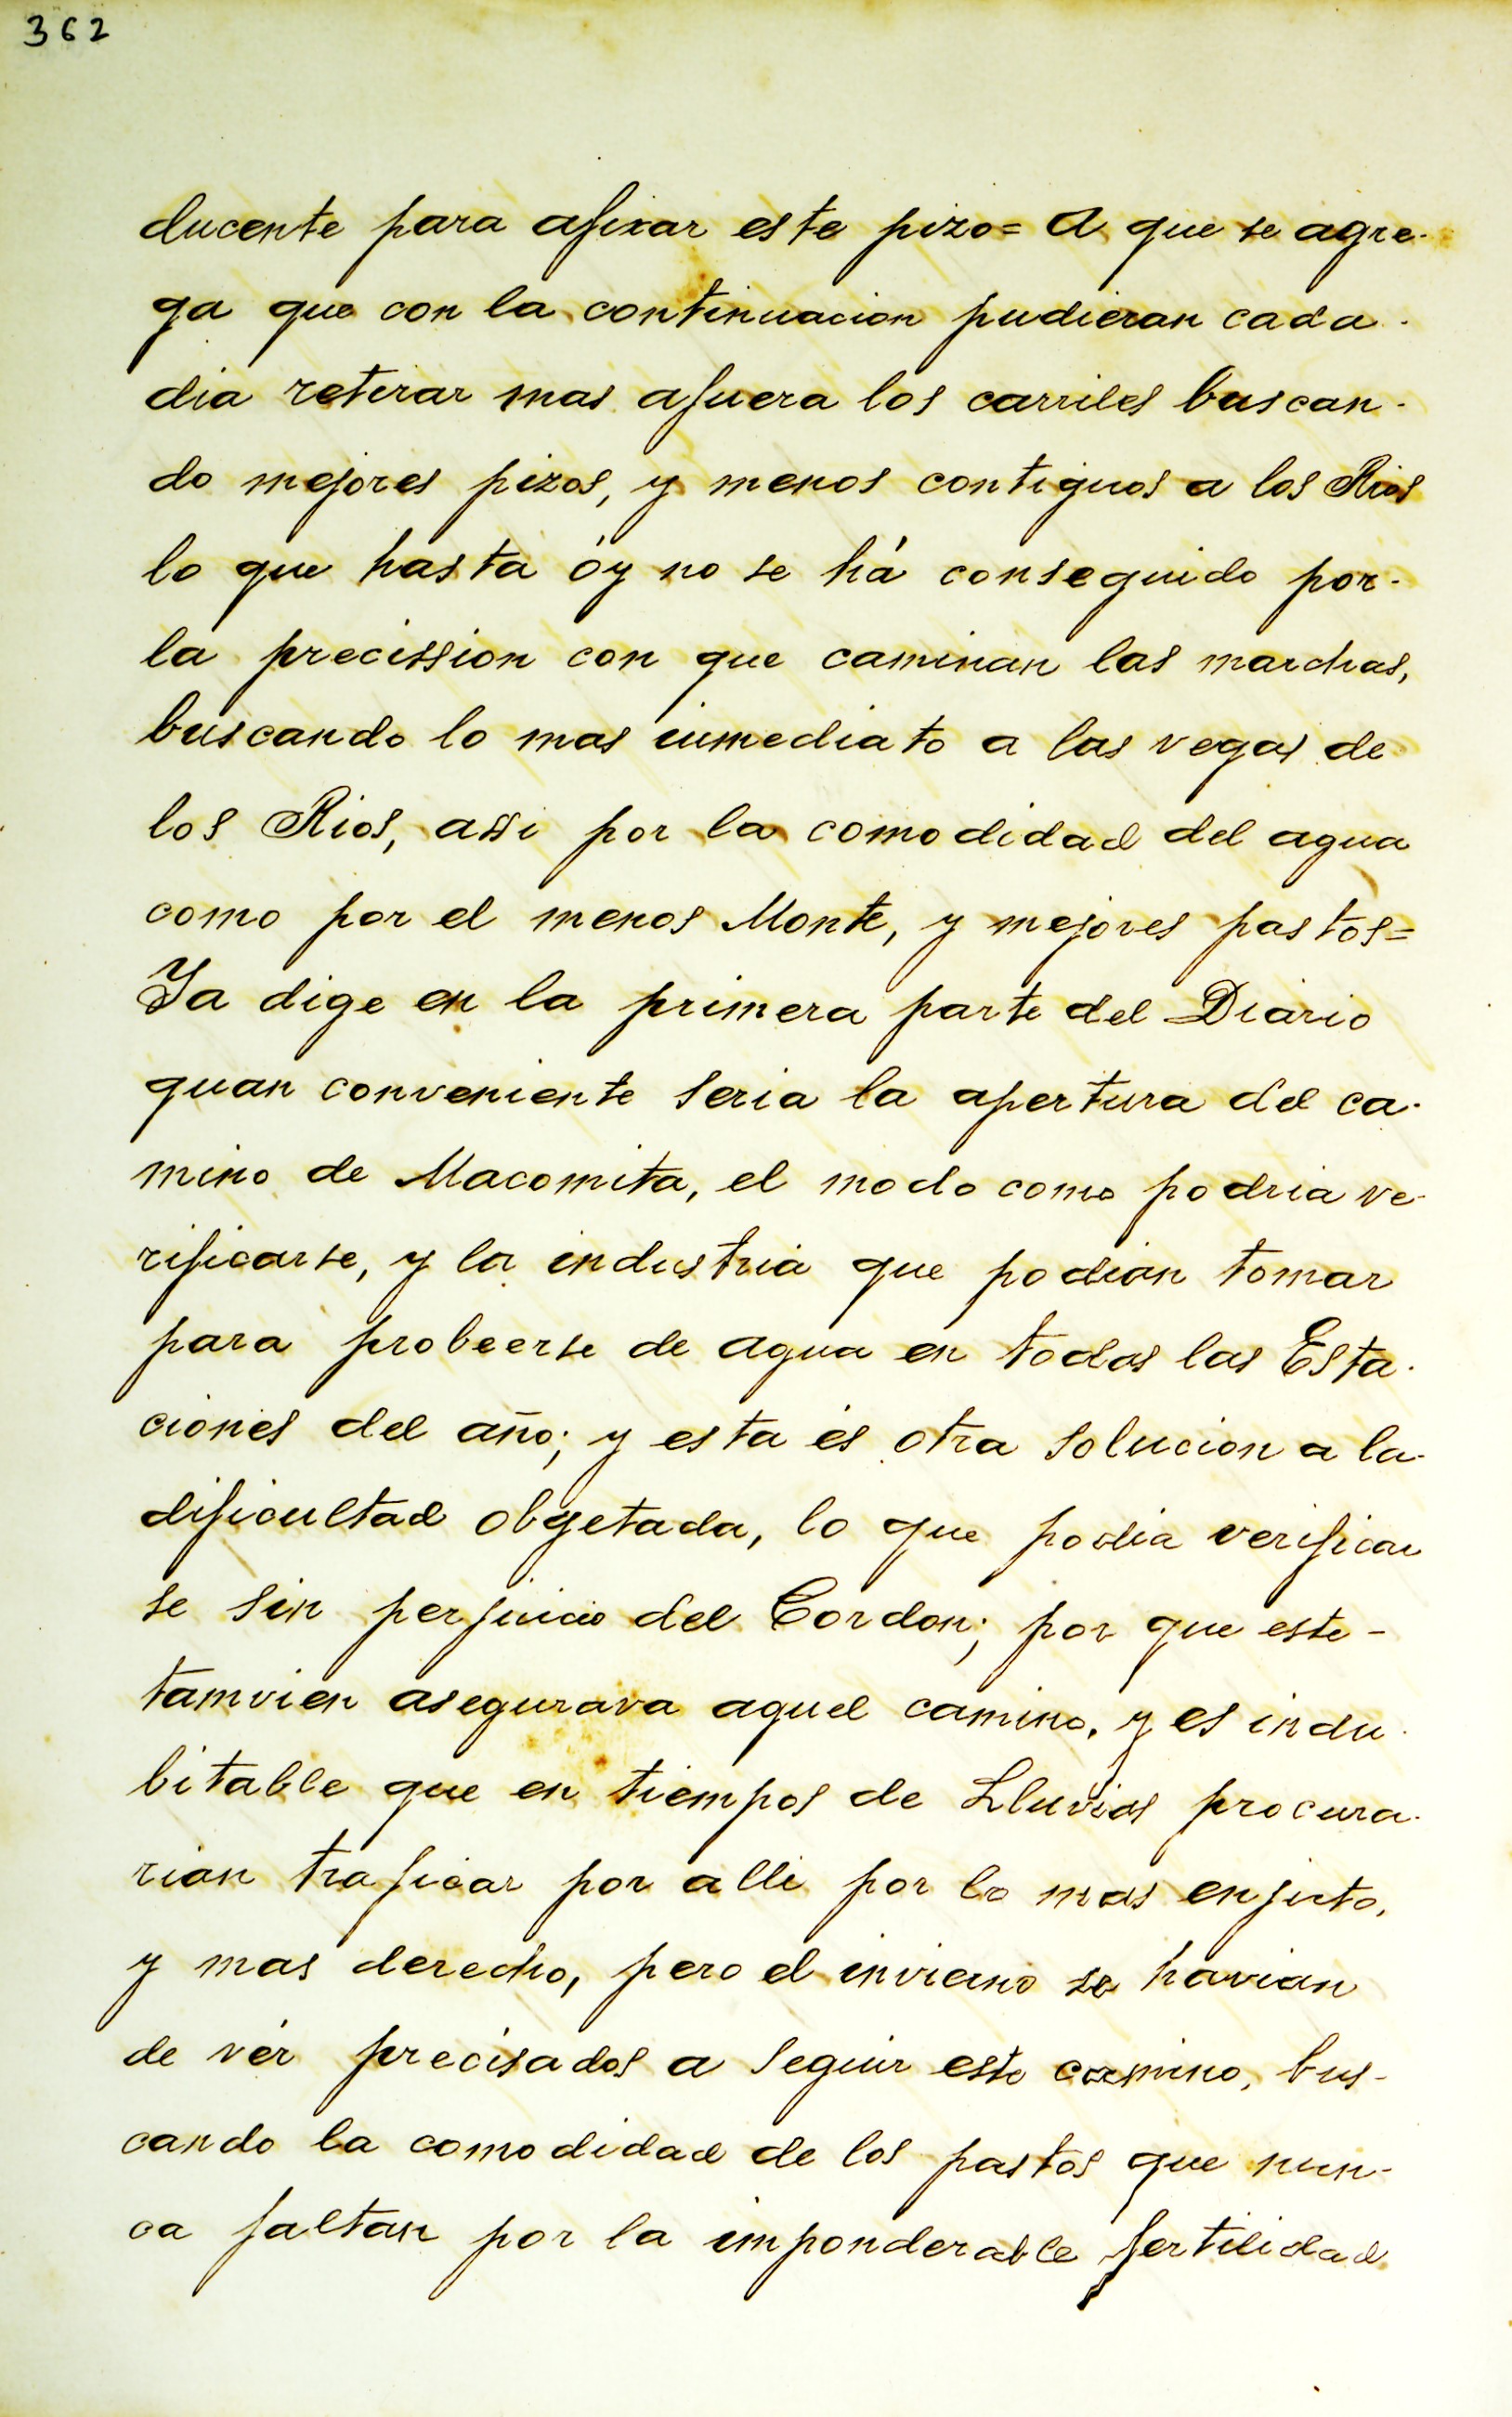 362
ducente para afixar este pizo= A que se agre-
ga que con la continuacion pudieran cada-
dia retirar mas afuera los carriles buscan-
do mejores pizos, y menos contiguos a los Rios
lo que hasta óy no se há conseguido por-
la precission con que caminan las marchas,
buscando lo mas inmediato a las vegas de
los Rios, assi por la comodidad del agua
como por el menos Monte, y mejores pastos=
Ya dige en la primera parte del Diario
quan conveniente seria la apertura del ca-
mino de Macomita, el modo como podria ve-
rificarse, y la industria que podian tomar
para probeerse de agua en todas las Esta-
ciones del año; y esta és otra solucion a la-
dificultad obgetada, lo que podia verificar
se sin perjuicio del Cordon; por que este-
tamvien asegurava aquel camino, y es indu-
bitable que en tiempos de Lluvias procura-
rian traficar por alli por lo mas enjuto,
y mas derecho, pero el invierno se havian
de vér precisados a seguir este camino, bus-
cando la comodidad de los pastos que nun-
ca faltan por la imponderable fertilidad